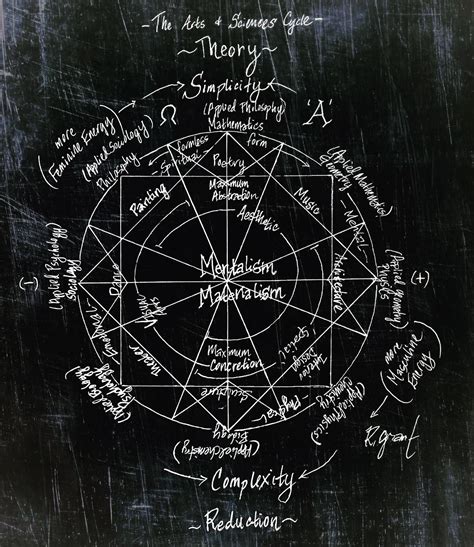 - The Arts & Sciences Cycle -
~ Theory ~
Simplicity
(Applied Philosophy)
Mathematics
Ω
'A'
(more
Feminine Energy)
(Applied Sociology)
Philosophy
formless
Spiritual
form
Poetry
Maximum
Abstraction
Painting
Aesthetic
Music
(Applied Mathematics)
Geometry
- Mental -
(-)
(Applied Psychology)
Sociology
Dance
Mentalism
Materialism
Architecture
(Applied Geometry)
Physics
(+)
Emotional -
Theater
Visual
Arts
Maximum
Concretion
'Special'
Interior
Design
(more
Masculine
Energy)
(Applied Biology)
Psychology
Sculpture
Physical -
(Applied Physics)
Chemistry
Biology
(Applied Chemistry)
R. grant
Complexity
~ Reduction ~